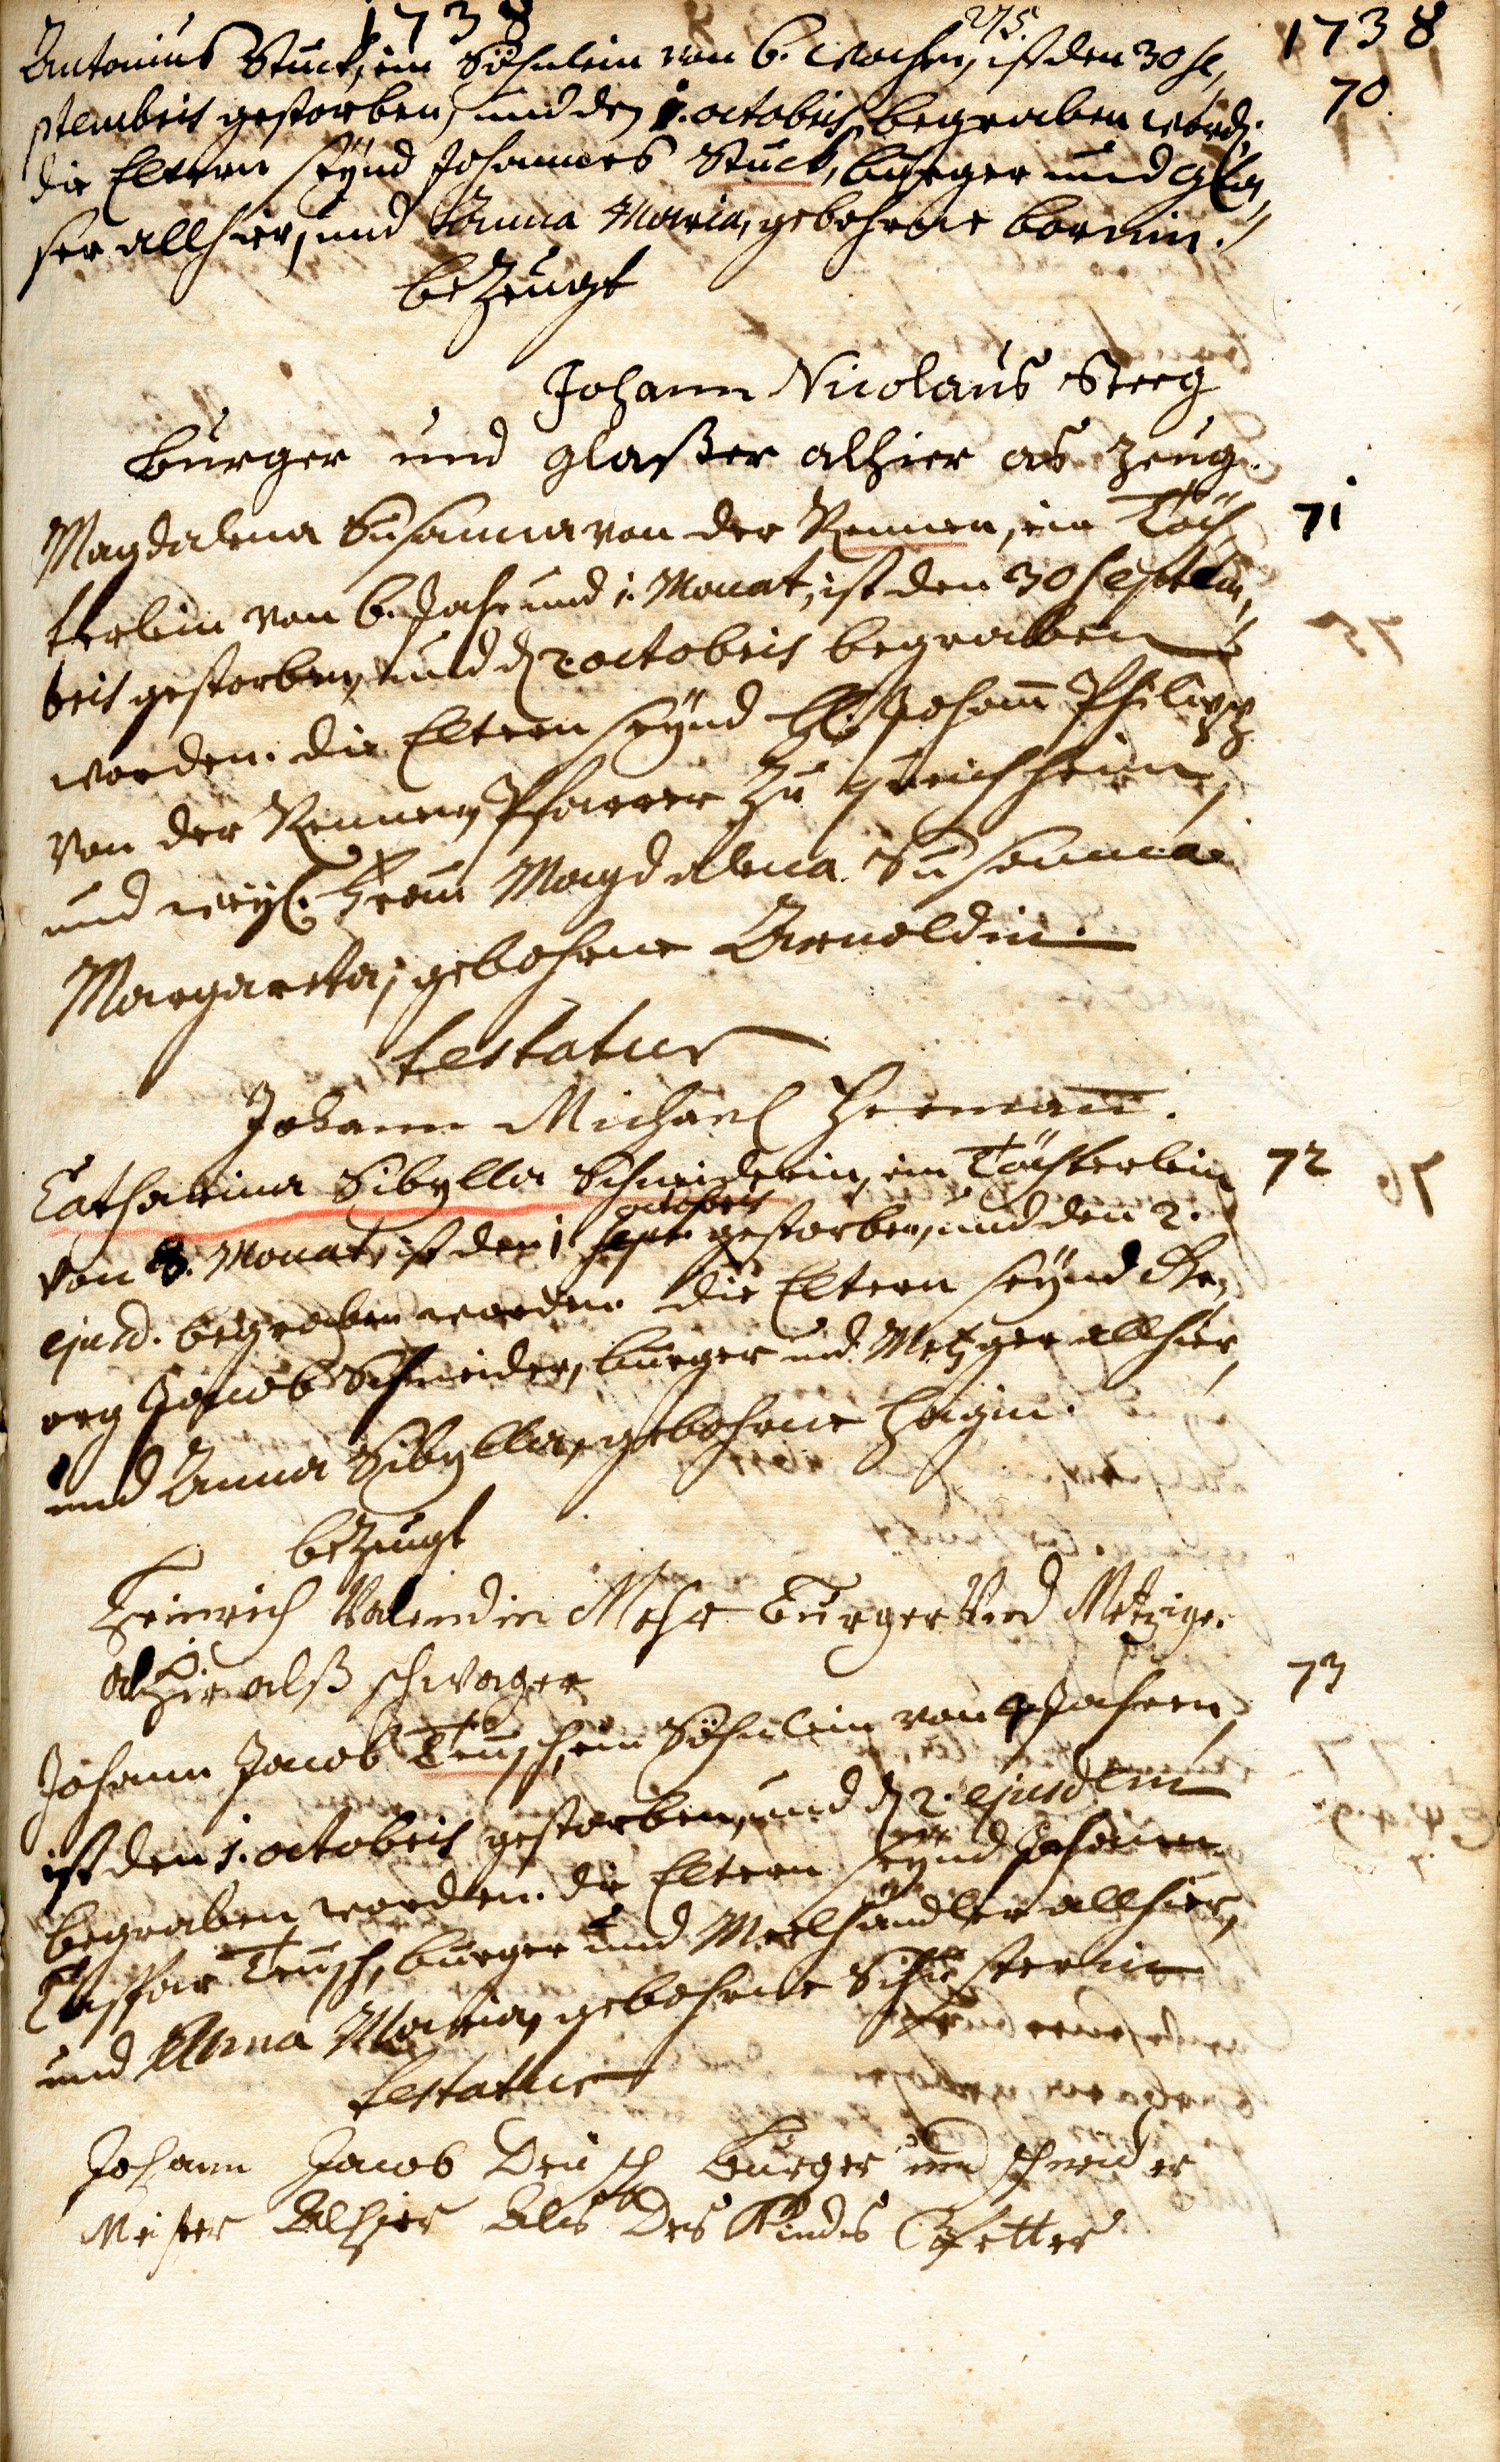 1738
275.
1738
Antonius Stuck, ein Söhnlein von 6. wochen, ist den 30 Se,
70.
ptembris gestorben, und den 1. octobris begraben word.
die Eltern seynd Johannes Stuck, burger und gla,
ser allhier, und Anna Maria, gebohrne bornin.
bezeugt
Johann Nicolaus Steeg
burger und glaßer alhier as zeug.
Magdalena Susanna von der Rennen, ein Töch,
71
terlein von 6. Jahr und 1. Monat, ist den 30 Septem,
bris gestorben, und d 2 octobris begraben
worden. die Eltern seynd H. Johann Philipp
von der Rennen, Pfarrer zu
und weyl. Frau Magdalena Susanna
Margareta, gebohrne Arnoldin.
testatur
Johann Michael Hermann.
Catharina Sibylla Schneiderin, ein Töchterlein
72
von 8. Monat, ist den 1. octobris gestorben, und den 2.
ejusd. begraben worden. die Eltern seynd Ge,
org Jacob Schneider, burger und Metzger allhier,
und Anna Sibylla, gebohrne Hagin.
bezeugt
Heinrich Valendin Mehr Burger Und Metziger
alhir alß schwager
73
Johann Jacob Teusch, ein Söhnlein von 4 Jahren,
ist den 1. octobris gestorben, und d 2. ejusdem
begraben worden. die Eltern seynd Johann
Caspar Teusch, burger und Meelhändler allhier,
und Anna Maria, gebohrne Schusterin
testatur
Johann Jacob Deusch Burger und schneider
Meister Alhier Als Des Kindes Vetter